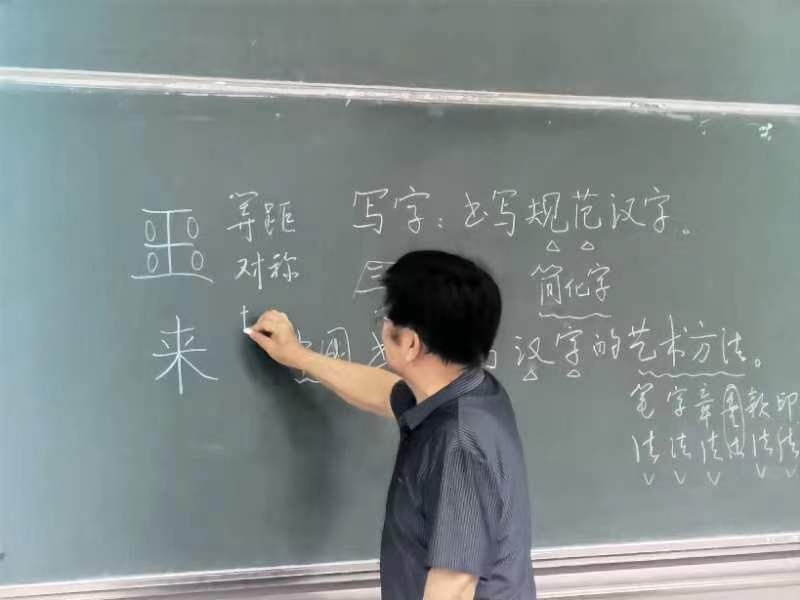 等距 写字：书写规范汉字。
对称 简化字
来
汉字的艺术方法。
笔字章墨款印
法法法法法法